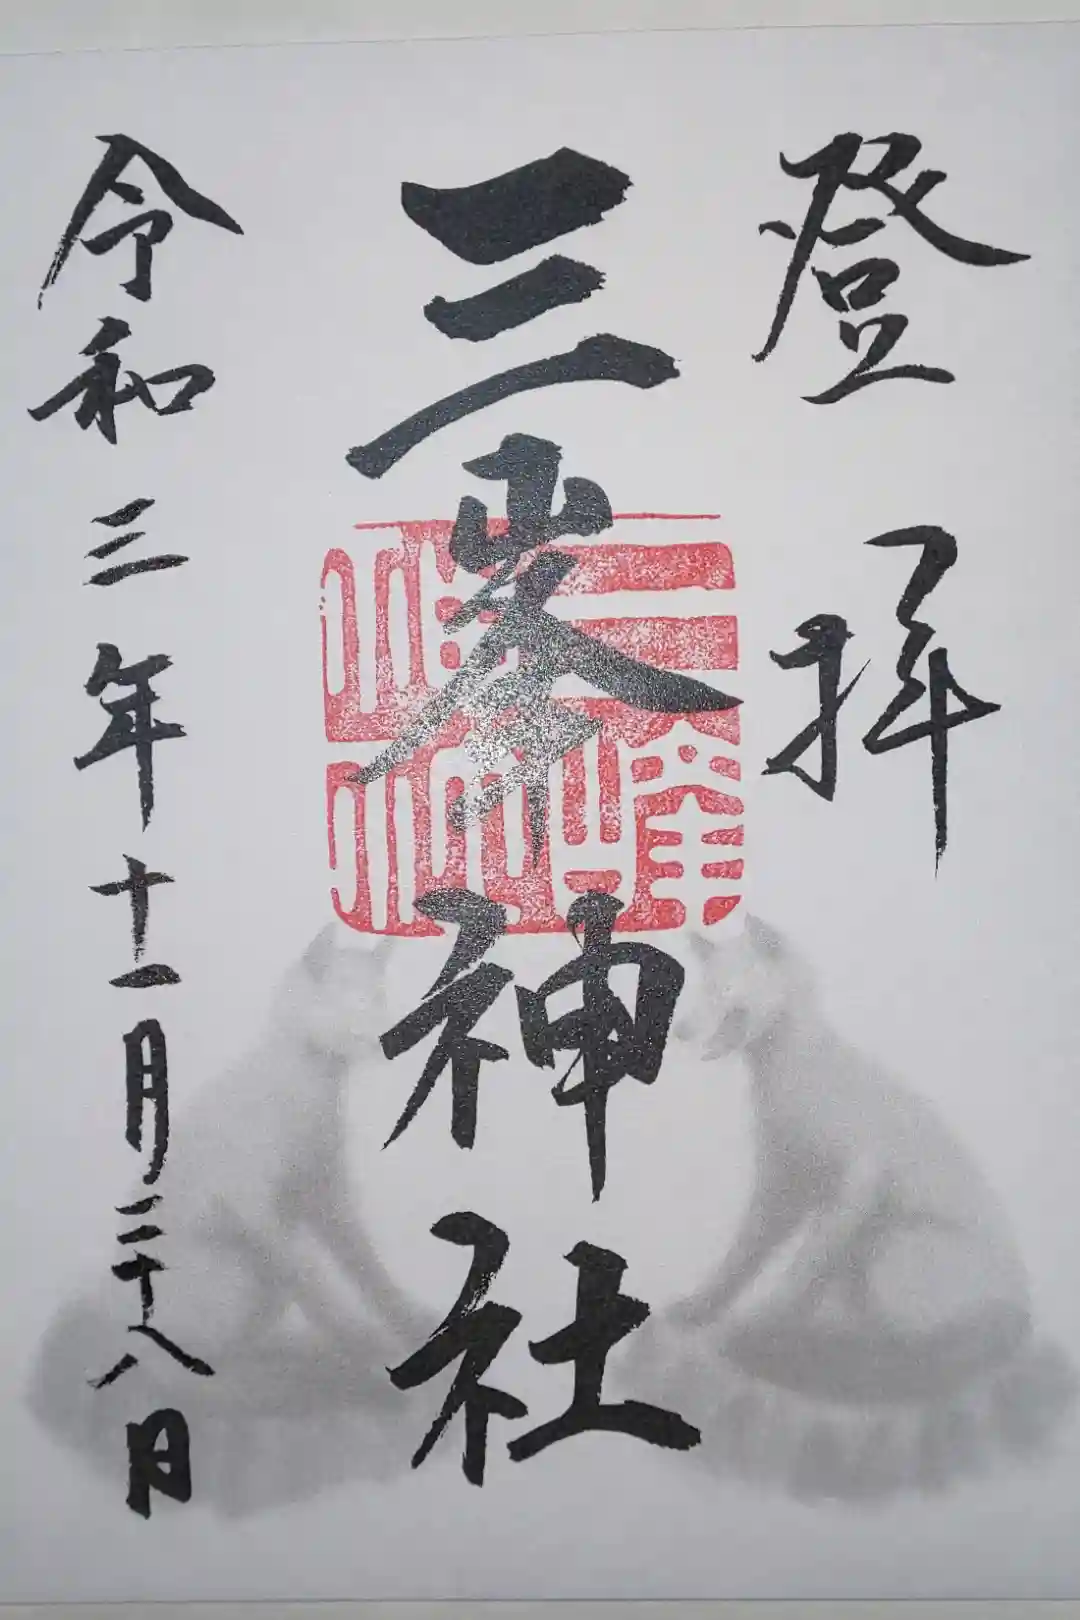 登拝
三峯神社
令和三年十一月二十八日